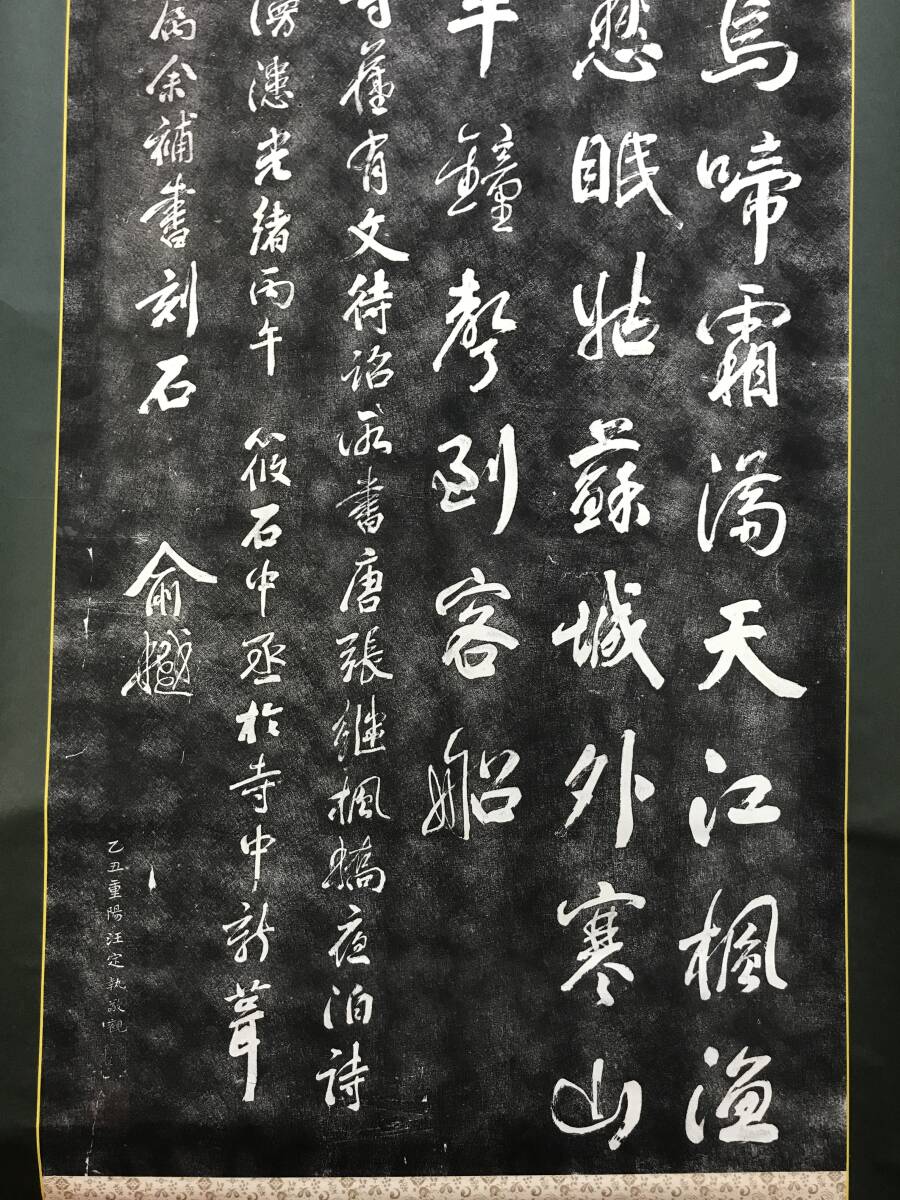 烏啼霜滿天江楓漁
愁眠姑蘇城外寒山
半鐘聲到客船
寺舊有文待詔所書唐張繼楓橋夜泊詩
漫漶光緒丙午筱石中丞於寺中新葺
屬余補書刻石
俞樾
乙丑重陽汪定執敬觀